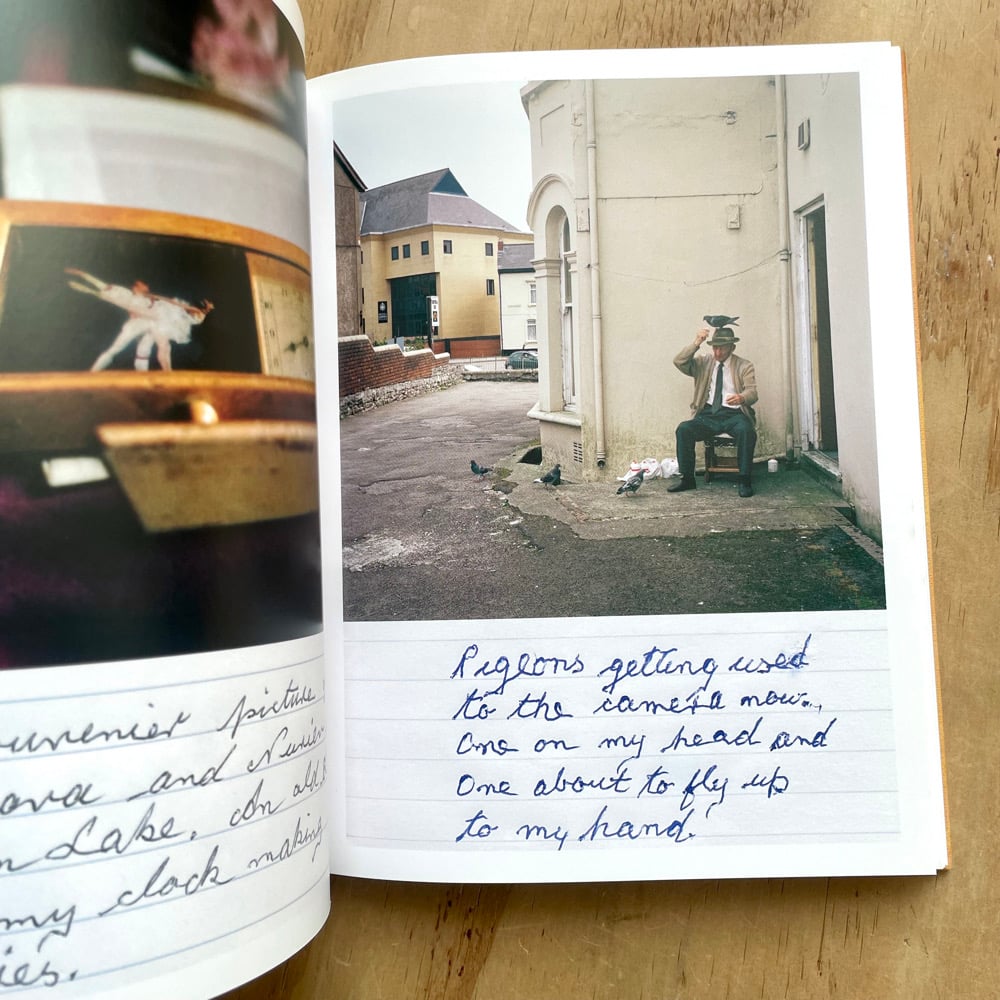 ouvenier picture
ova and
n Lake. An old
my clock making
ies.
Pigeons getting used
to the camera now..,
One on my head and
One about to fly up
to my hand.'